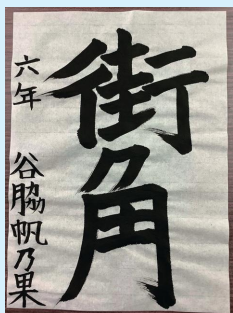 街角
六年 谷脇帆乃果